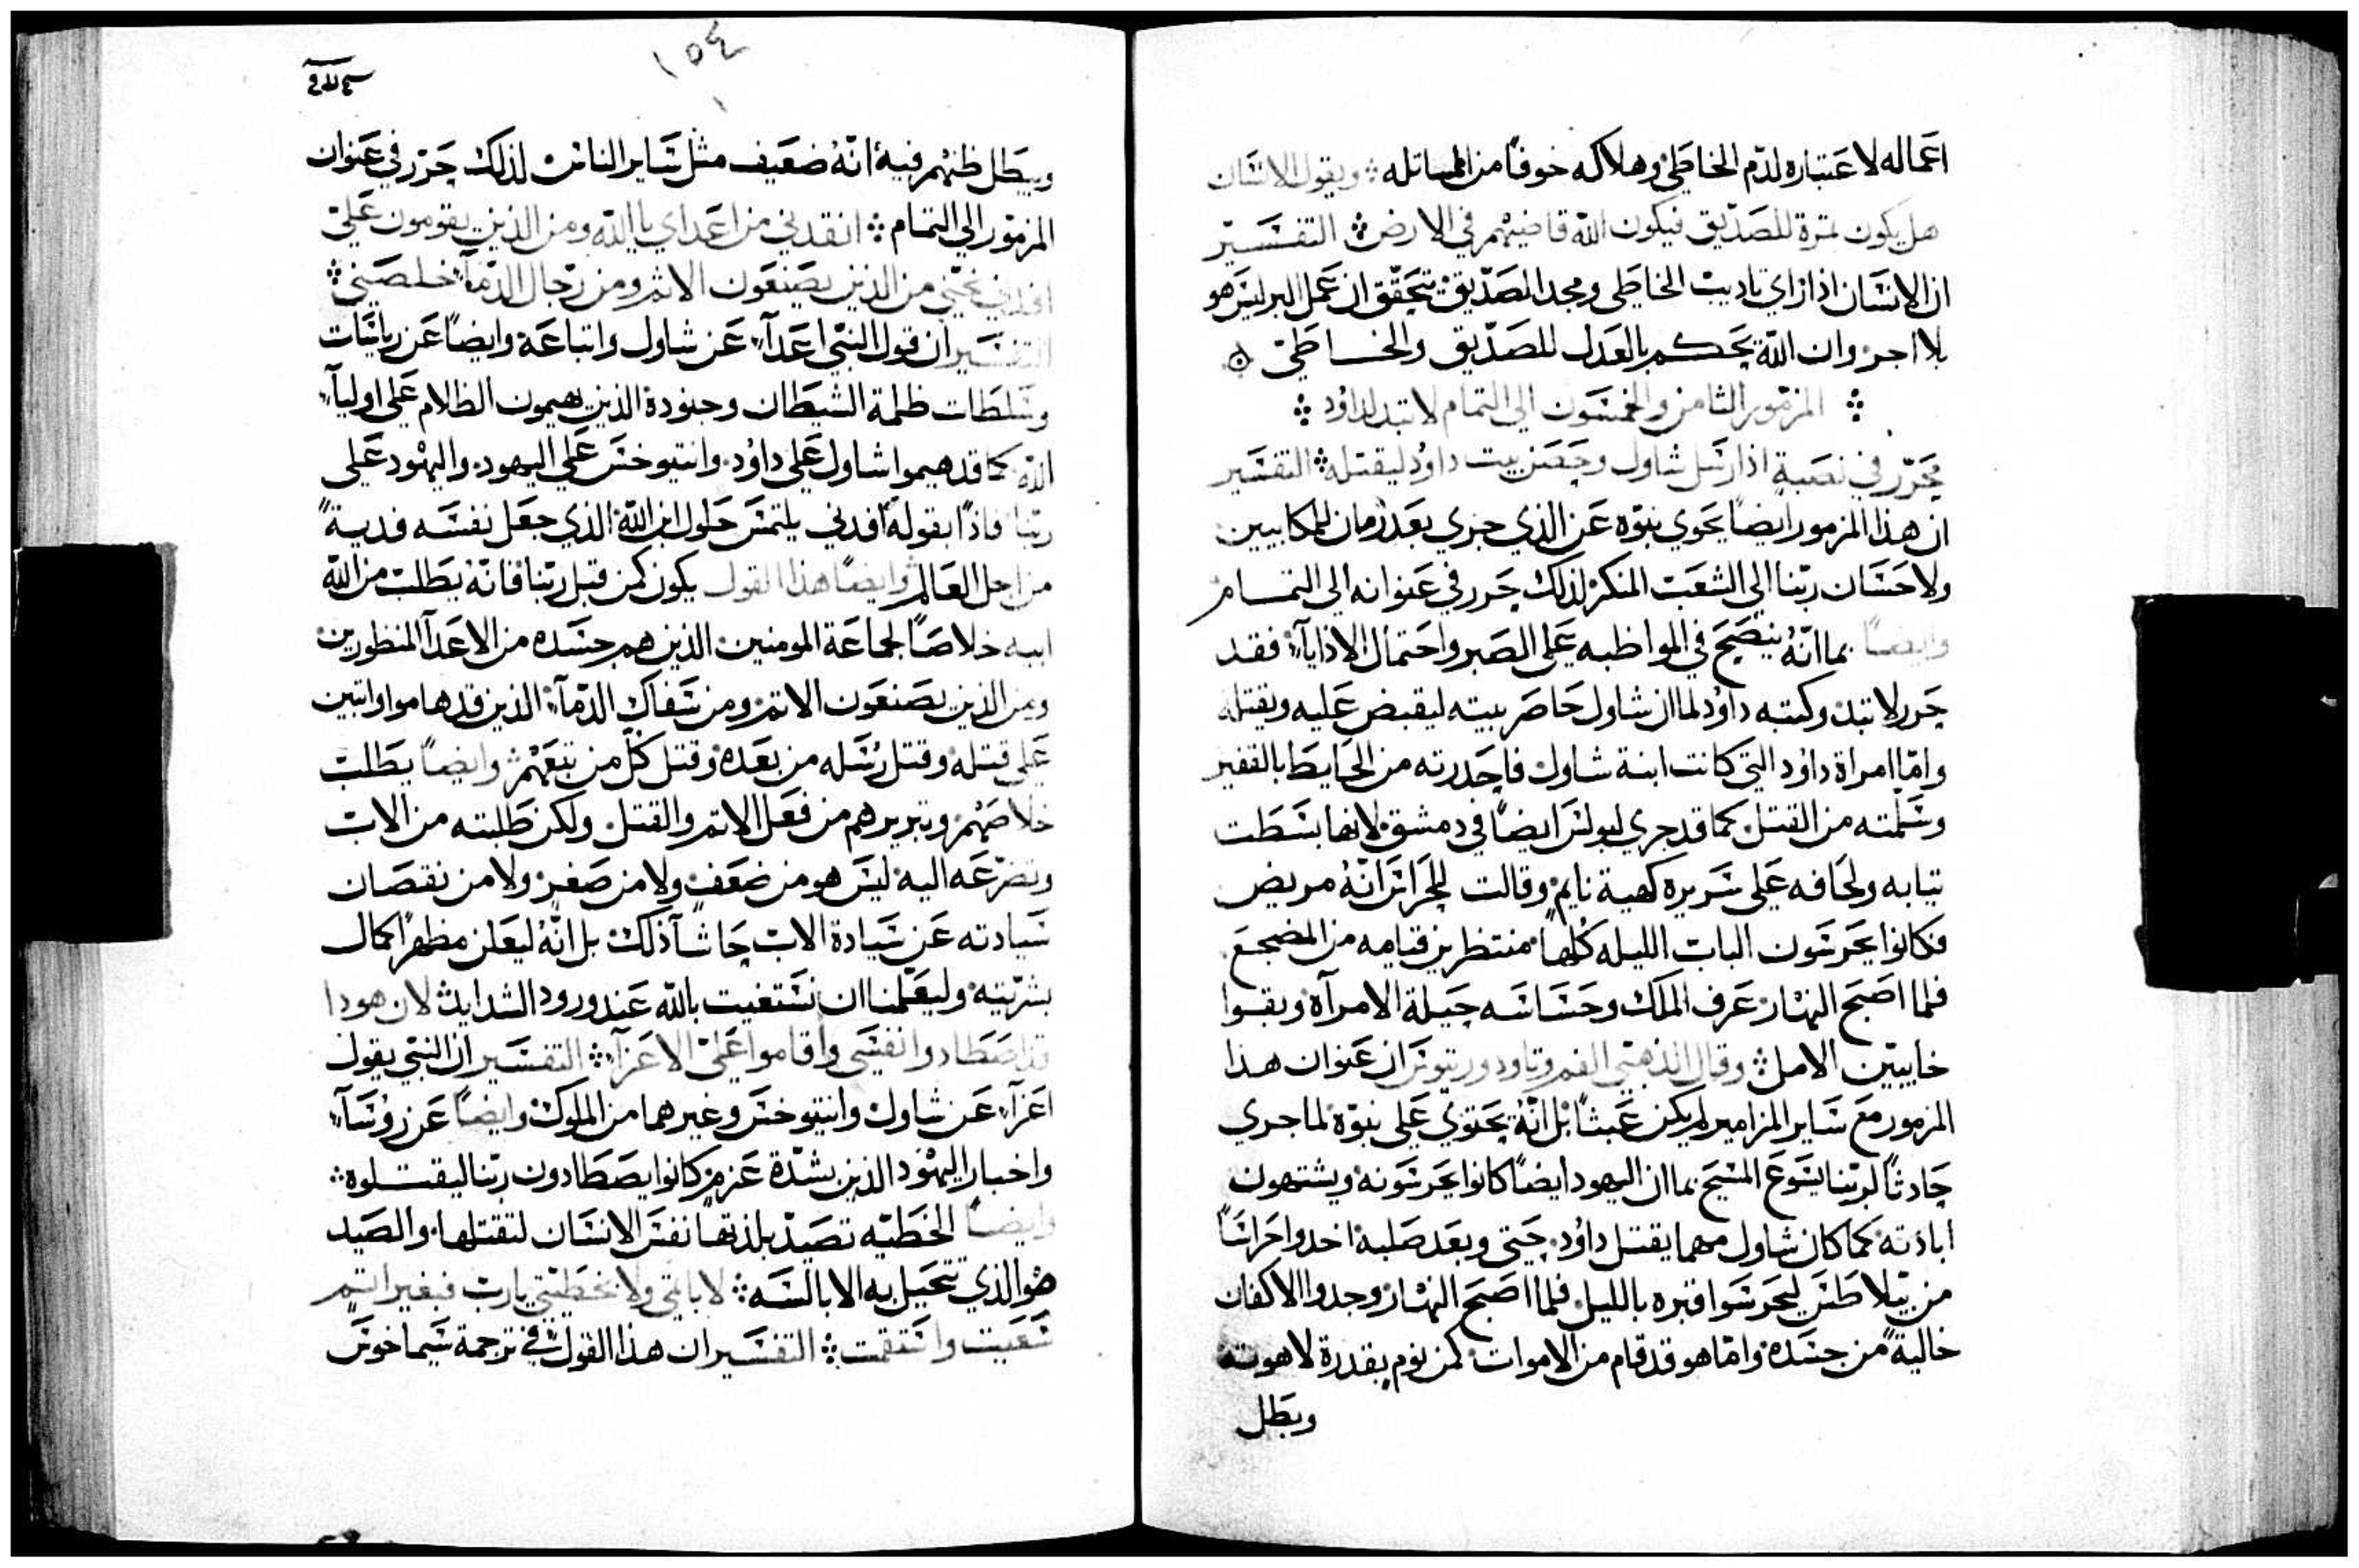 اعماله لاعتباره لدم الخاطي وهلاكه خوفا من المساتله ويقول الانسان
هل يكون ثمرة للصديق فيكون الله قاضيهم في الارض التفسير
ان الانسان اذا راي تاديب الخاطي ومجد الصديق تحقق ان عمل البر ليس هو
بلا اجر وان الله يحكم بالعدل للصديق والخاطي
المزمور الثامن والخمسون الي التمام لا تبد لداود
محرر في نصبة اذ ارسل شاول وحصن بيت داود ليقتله التفسير
ان هذا المزمور ايضا يحوي نبوه عن الذي جري بعد زمان للمكابيين
ولاحسان ربنا الي الشعب المنكر لذلك حرر في عنوانه الي التمام
وايضا بما انه ينصح في المواظبه علي الصبر واحتمال الاذايا فقد
حرر لا تبد وكتبه داود لما ان شاول حاصر بيته ليقبض عليه ويقتله
واما امراة داود التي كانت ابنة شاول فاحدرته من الحايط بالقفير
وسلمته من القتل كما قد جري لبولس ايضا في دمشق لانها بسطت
تيابه ولحافه علي سريره كهية نايم وقالت للحراس انه مريض
فكانوا يحرسون الباب الليله كلها منتظرين قيامه من المضجع
فلما اصبح النهار عرف الملك وحساسه حيلة الامراة وبقوا
خايبين الامل وقال الذهبي الفم وتاودوريتوس ان عنوان هذا
المزمور مع ساير المزامير لم يكن عبثا بل انه يحتوي علي نبوة لما جري
حادثا لربنا يسوع المسيح بما ان اليهود ايضا كانوا يحرسونه ويشتهون
ابادته كما كان شاول مهما يقتل داود حتي وبعد صلبه اخدوا حراسا
من بيلاطس ليحرسوا قبره بالليل فلما اصبح النهار وجدوا الاكفان
خالية من جسده واما هو قد قام من الاموات كمن نوم بقدرة لاهوته
وبطل
١٥٤
ويبطل ظنهم فيه انه ضعيف مثل ساير الناس لذلك حرر في عنوان
المزمور الي التمام انقدني من اعداي يا الله ومن الذين يقومون علي
افدني نجني من الذين يصنعون الاثم ومن رجال الدما خلصني
التفسير ان قول النبي اعدا عن شاول واتباعه وايضا عن رياسات
وسلطات ظلمة الشيطان وجنوده الذين يهيمون الظلام علي اوليا
الله كما قد هيموا شاول علي داود وانتيوخس علي اليهود واليهود علي
ربنا فاذا بقوله افدني يلتمس حلول ابن الله الذي جعل نفسه فدية
من اجل العالم وايضا هذا القول يكون كمن قبل ربنا فانه يطلب من الله
ابيه خلاصا لجماعة المومنين الذين هم جسده من الاعدا المنظورين
ومن الذين يصنعون الاتم ومن سفاك الدما الذين قد هاموا واتبين
علي قتله وقتل رسله من بعده وقتل كل من يتبعهم وايضا يطلب
خلاصهم وتبريرهم من فعل الاتم والقتل ولكن طلبته من الاب
وتضرعه اليه ليس هو من ضعف ولا من صغر ولا من نقصان
سيادته عن سيادة الاب حاشا ذلك بل انه ليعلن مظهرا كمال
بشريته وليعلمنا ان نستغيت بالله عند ورود الشدايد لان هودا
قد اصطادوا نفسي واقاموا علي الاعزا التفسير ان النبي يقول
اعزا عن شاول وانتيوخس وغيرهما من الملوك وايضا عن روسا
واحبار اليهود الذين بشدة عزم كانوا يصطادون ربنا ليقتلوه
وايضا الخطيه تصيد بلذتها نفس الانسان لتقتلها والصيد
هو الذي تتحيل به الابالسه لا باثمي ولا بخطيتي يارب فبغير اتم
سعيت واستقمت التفسير ان هذا القول في ترجمة سيماخوس